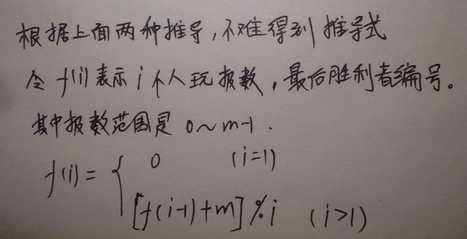 根据上面两种推导,不难得到推导式
令 f(i)表示 i 个人玩报数,最后胜利者编号。
其中报数范围是 0~m-1.
f(i)= { 0 (i=1)
[f(i-1)+m]%i (i>1)